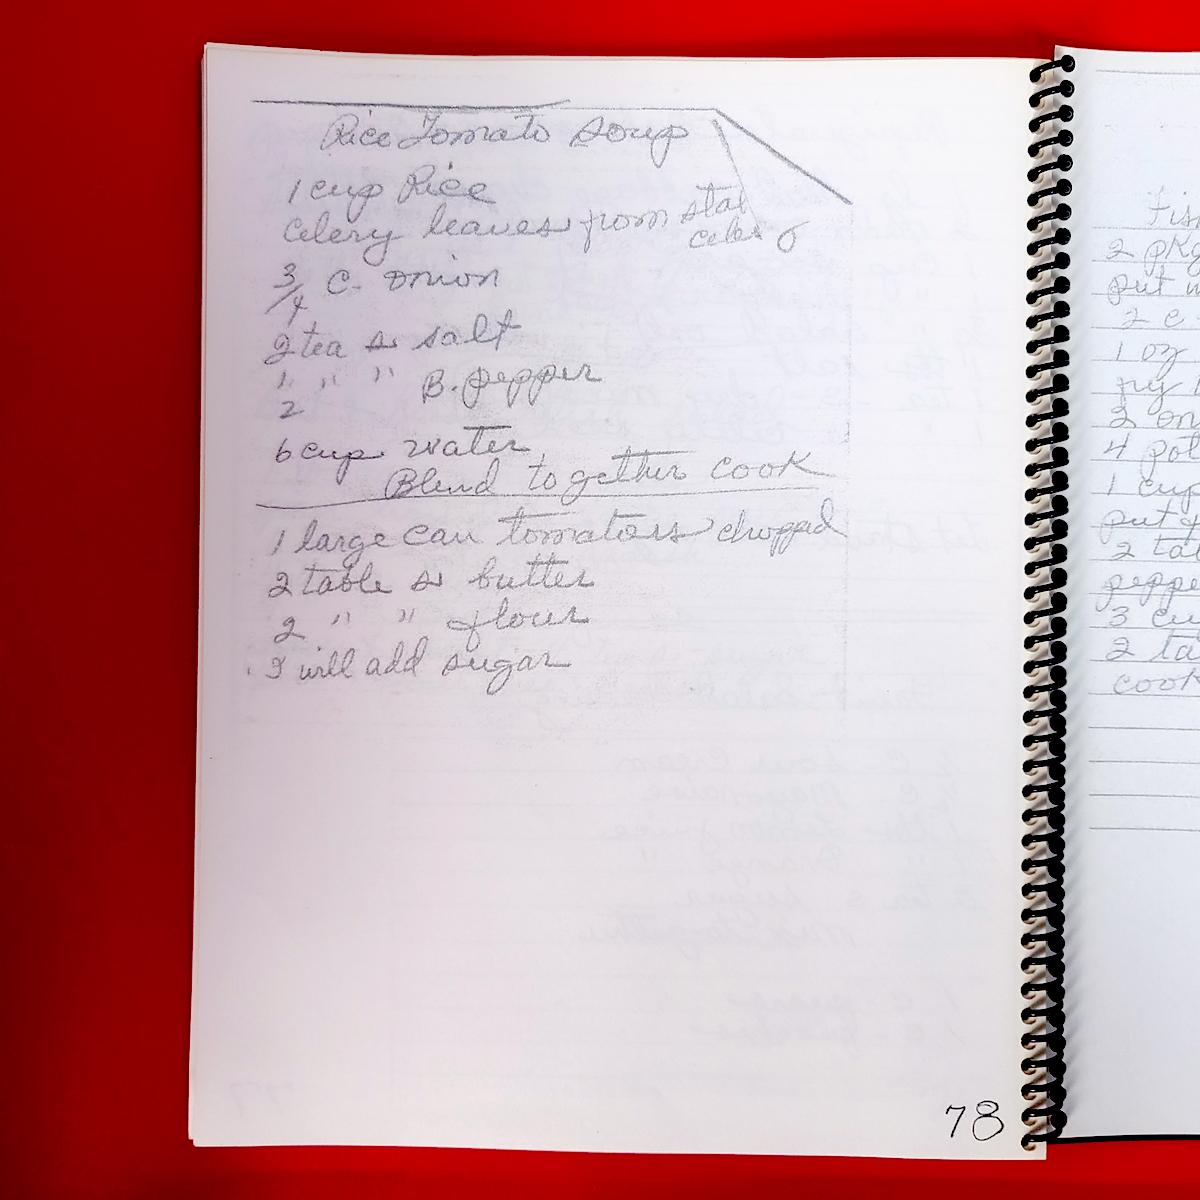 Rice Tomato Soup
1 cup Rice
Celery leaves from
3/4 c. onion
2 tea s salt
" " " B. pepper
2
6 cup water
Blend together cook
1 large can tomatoes chopped
2 table s butter
2 " " flour
I will add sugar
78
2 pkg
put
2 c
1 oz
4
1 cup
put
2
3 cu
2 ta
cook